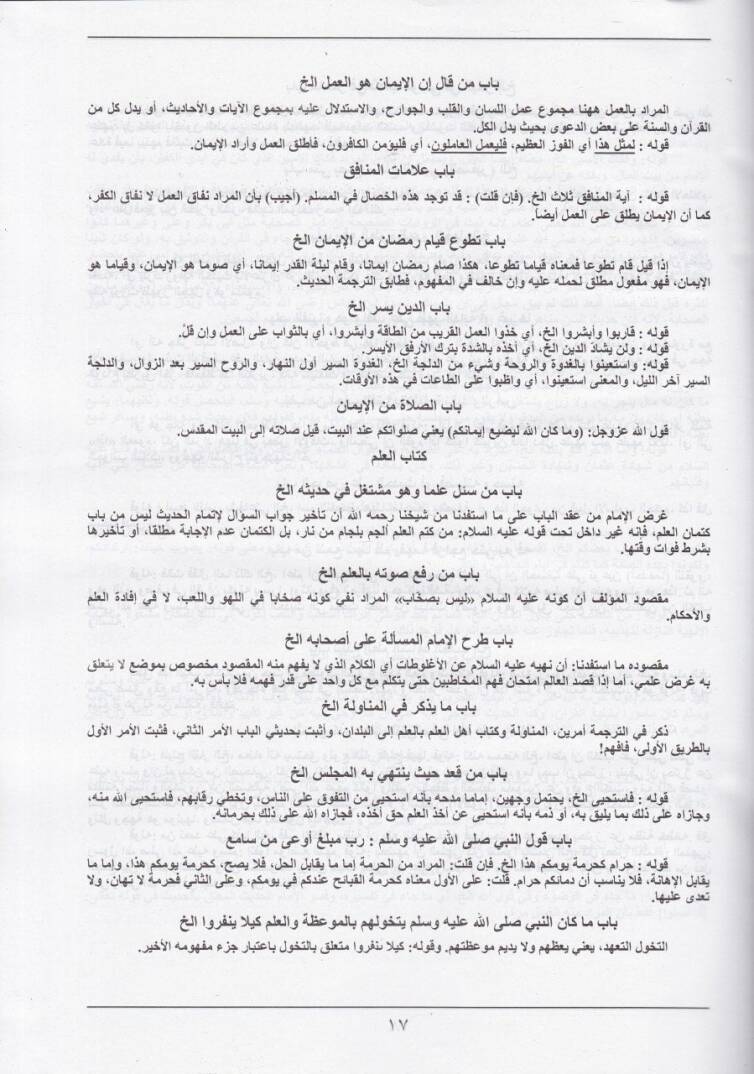 باب من قال إن الإيمان هو العمل الخ
المراد بالعمل ههنا مجموع عمل اللسان والقلب والجوارح، والاستدلال عليه بمجموع الآيات والأحاديث، أو يدل كل من
القرآن والسنة على بعض الدعوى بحيث يدل الكل.
قوله : لمثل هذا أي الفوز العظيم، فليعمل العاملون، أي فليؤمن الكافرون، فأطلق العمل وأراد الإيمان.
باب علامات المنافق
قوله : آية المنافق ثلاث الخ. (فإن قلت) : قد توجد هذه الخصال في المسلم. (أجيب) بأن المراد نفاق العمل لا نفاق الكفر،
كما أن الإيمان يطلق على العمل أيضاً.
باب تطوع قيام رمضان من الإيمان الخ
إذا قيل قام تطوعا فمعناه قياما تطوعا، هكذا صام رمضان إيمانا، وقام ليلة القدر إيمانا، أي صوما هو الإيمان، وقياما هو
الإيمان، فهو مفعول مطلق لحمله عليه وإن خالف في المفهوم، فطابق الترجمة الحديث.
باب الدين يسر الخ
قوله : قاربوا وأبشروا الخ، أي خذوا العمل القريب من الطاقة وأبشروا، أي بالثواب على العمل وإن قلَّ.
قوله : ولن يشادّ الدين الخ، أي أخذه بالشدة بترك الأرفق الأيسر.
قوله: واستعينوا بالغدوة والروحة وشيء من الدلجة الخ، الغدوة السير أول النهار، والروح السير بعد الزوال، والدلجة
السير آخر الليل، والمعنى استعينوا، أي واظبوا على الطاعات في هذه الأوقات.
باب الصلاة من الإيمان
قول الله عزوجل: (وما كان الله ليضيع إيمانكم) يعني صلواتكم عند البيت، قيل صلاته إلى البيت المقدس.
كتاب العلم
باب من سئل علما وهو مشتغل في حديثه الخ
غرض الإمام من عقد الباب على ما استفدنا من شيخنا رحمه الله أن تأخير جواب السؤال لإتمام الحديث ليس من باب
كتمان العلم، فإنه غير داخل تحت قوله عليه السلام: من كتم العلم ألجم بلجام من نار، بل الكتمان عدم الإجابة مطلقا، أو تأخيرها
بشرط فوات وقتها.
باب من رفع صوته بالعلم الخ
مقصود المؤلف أن كونه عليه السلام «ليس بصخاب» المراد نفي كونه صخابا في اللهو واللعب، لا في إفادة العلم
والأحكام.
باب طرح الإمام المسألة على أصحابه الخ
مقصوده ما استفدنا: أن نهيه عليه السلام عن الأغلوطات أي الكلام الذي لا يفهم منه المقصود مخصوص بموضع لا يتعلق
به غرض علمي، أما إذا قصد العالم امتحان فهم المخاطبين حتى يتكلم مع كل واحد على قدر فهمه فلا بأس به.
باب ما يذكر في المناولة الخ
ذكر في الترجمة أمرين، المناولة وكتاب أهل العلم بالعلم إلى البلدان، وأثبت بحديثي الباب الأمر الثاني، فثبت الأمر الأول
بالطريق الأولى، فافهم!
باب من قعد حيث ينتهي به المجلس الخ
قوله : فاستحيى الخ، يحتمل وجهين، إماما مدحه بأنه استحيى من التفوق على الناس، وتخطي رقابهم، فاستحيى الله منه،
وجازاه على ذلك بما يليق به، أو ذمه بأنه استحيى عن أخذ العلم حق أخذه، فجازاه الله على ذلك بحرمانه.
باب قول النبي صلى الله عليه وسلم : رب مبلغ أوعى من سامع
قوله : حرام كحرمة يومكم هذا الخ. فإن قلت: المراد من الحرمة إما ما يقابل الحل، فلا يصح، كحرمة يومكم هذا، وإما ما
يقابل الإهانة، فلا يناسب أن دمائكم حرام. قلت: على الأول معناه كحرمة القبائح عندكم في يومكم، وعلى الثاني فحرمة لا تهان، ولا
تعدى عليها.
باب ما كان النبي صلى الله عليه وسلم يتخولهم بالموعظة والعلم كيلا ينفروا الخ
التخول التعهد، يعني يعظهم ولا يديم موعظتهم. وقوله: كيلا ينفروا متعلق بالتخول باعتبار جزء مفهومه الأخير.
١٧